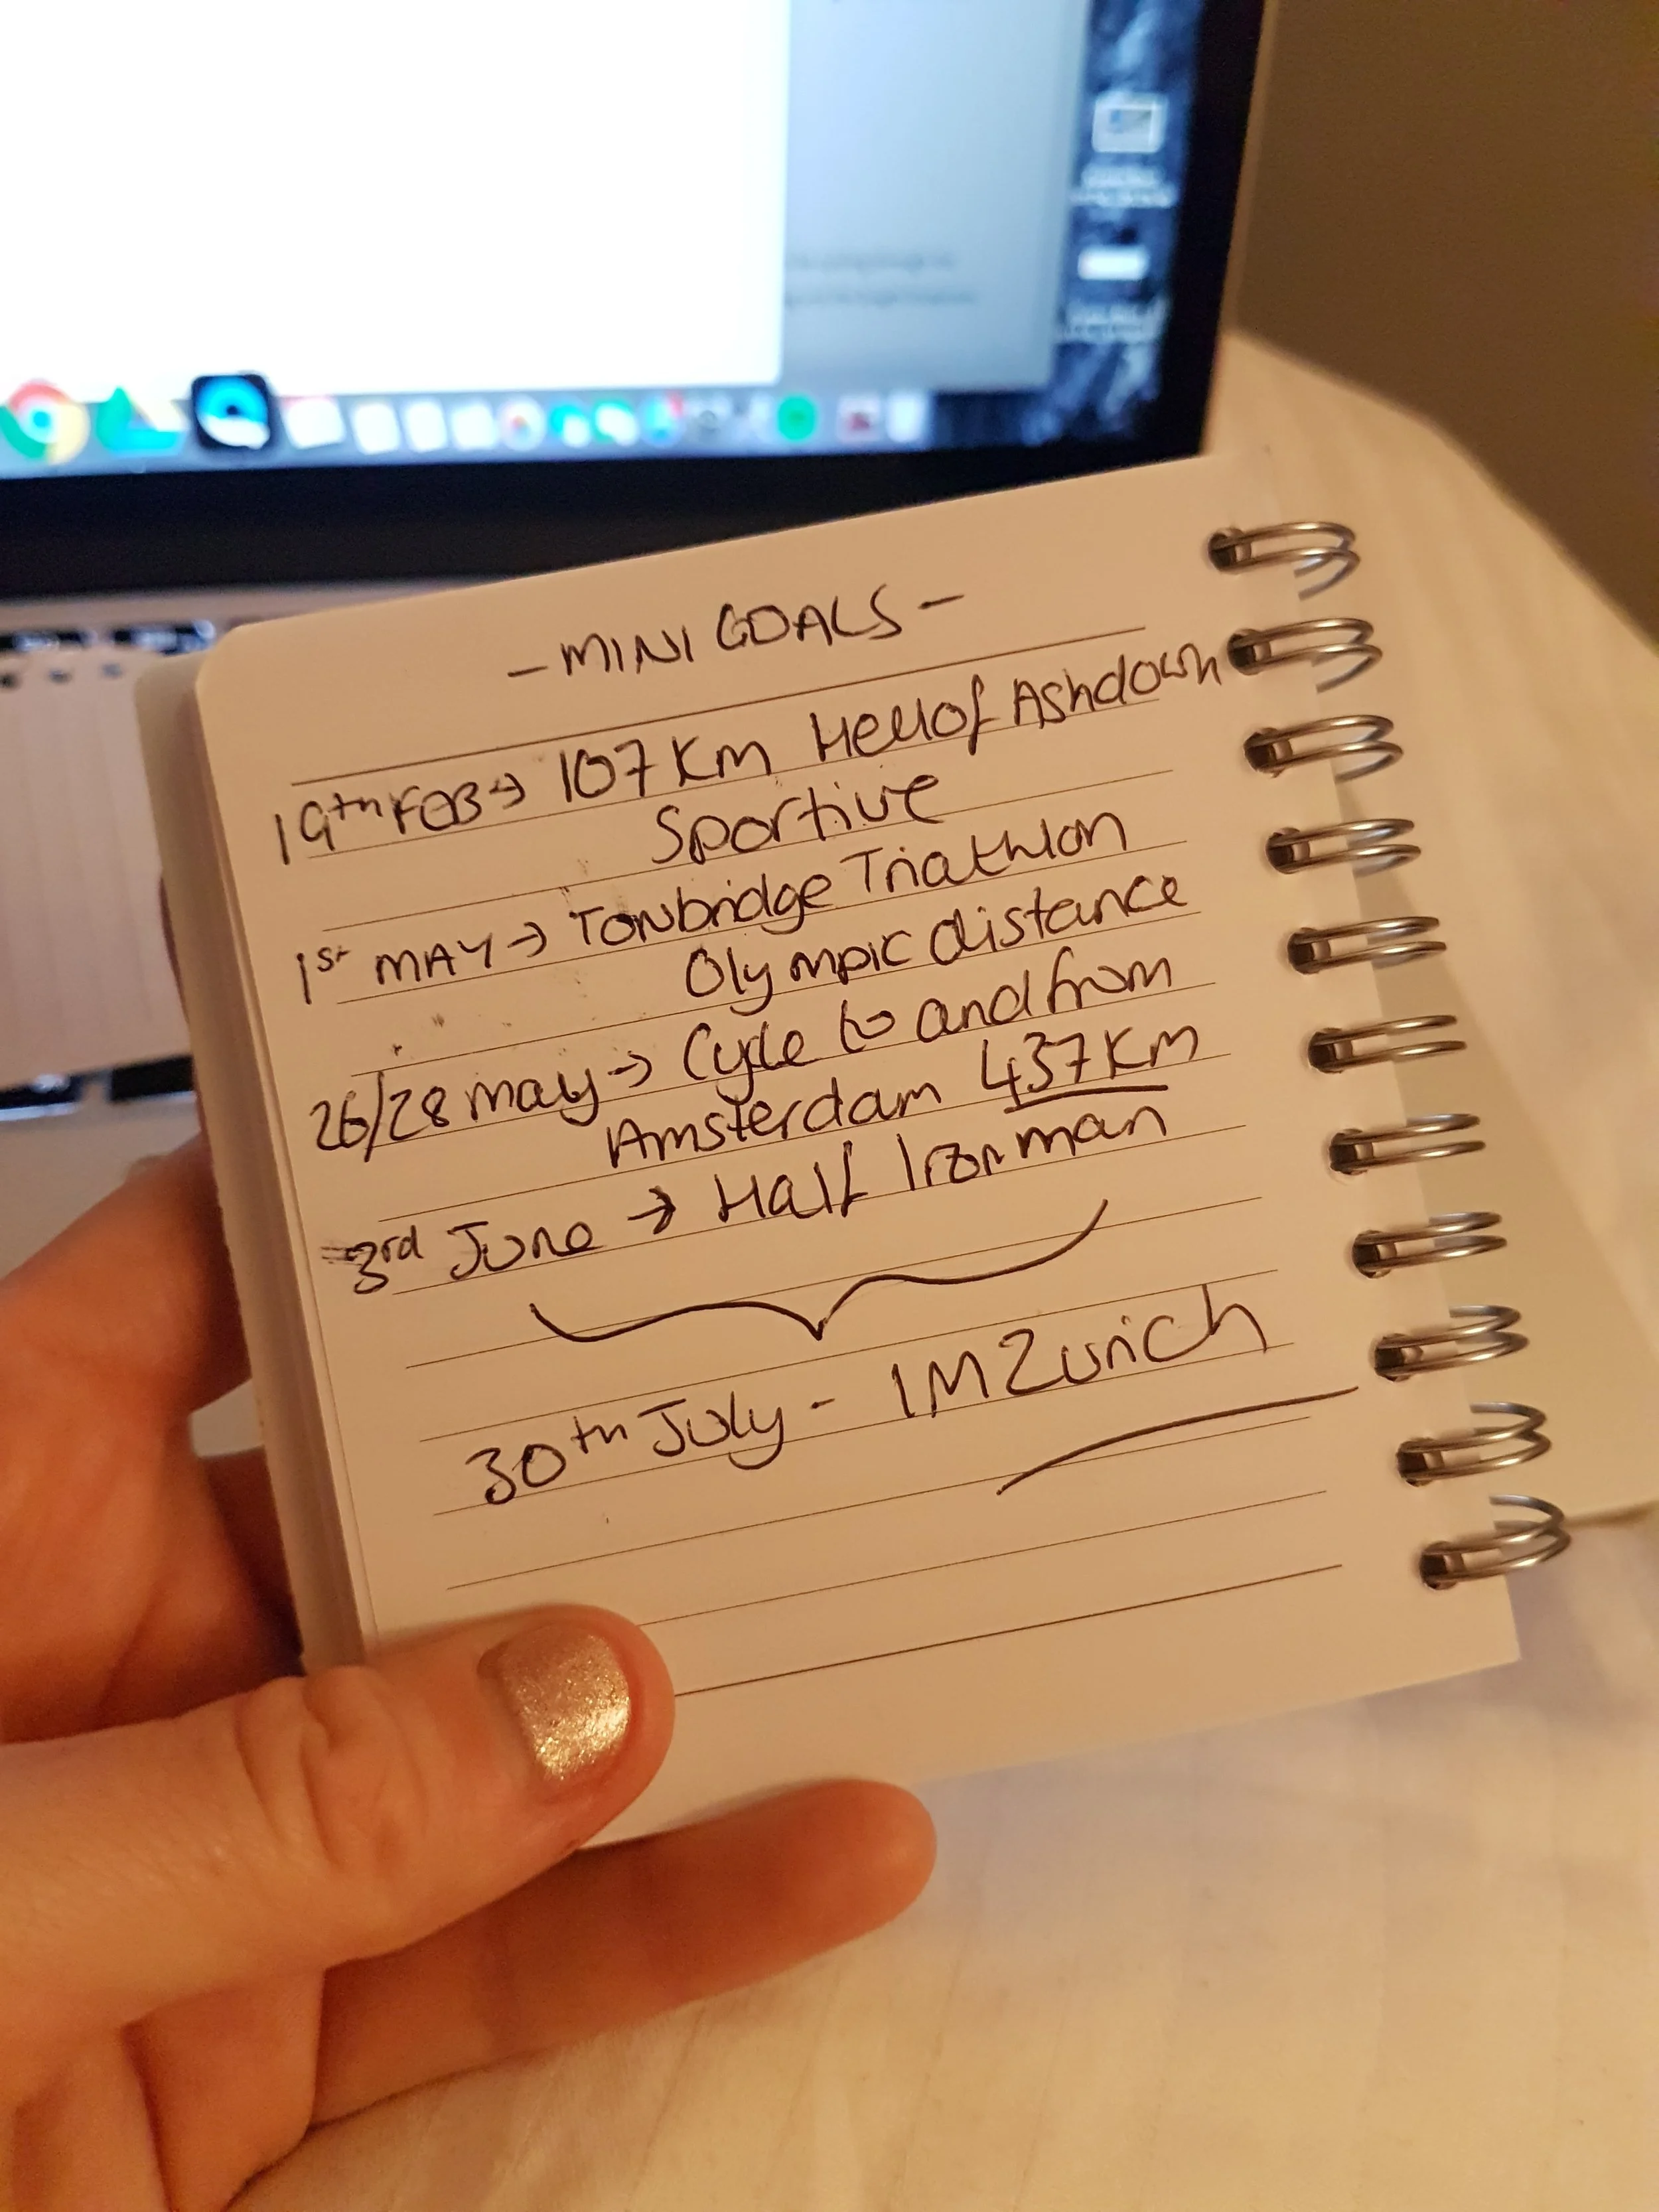 - MINI GOALS -
19th FEB → 107 Km Hell of Ashdown
Sportive
1st MAY → Tonbridge Triathlon
Olympic distance
26/28 may → Cycle to and from
Amsterdam 437 Km
3rd June → Half Ironman
30th July - IM Zurich